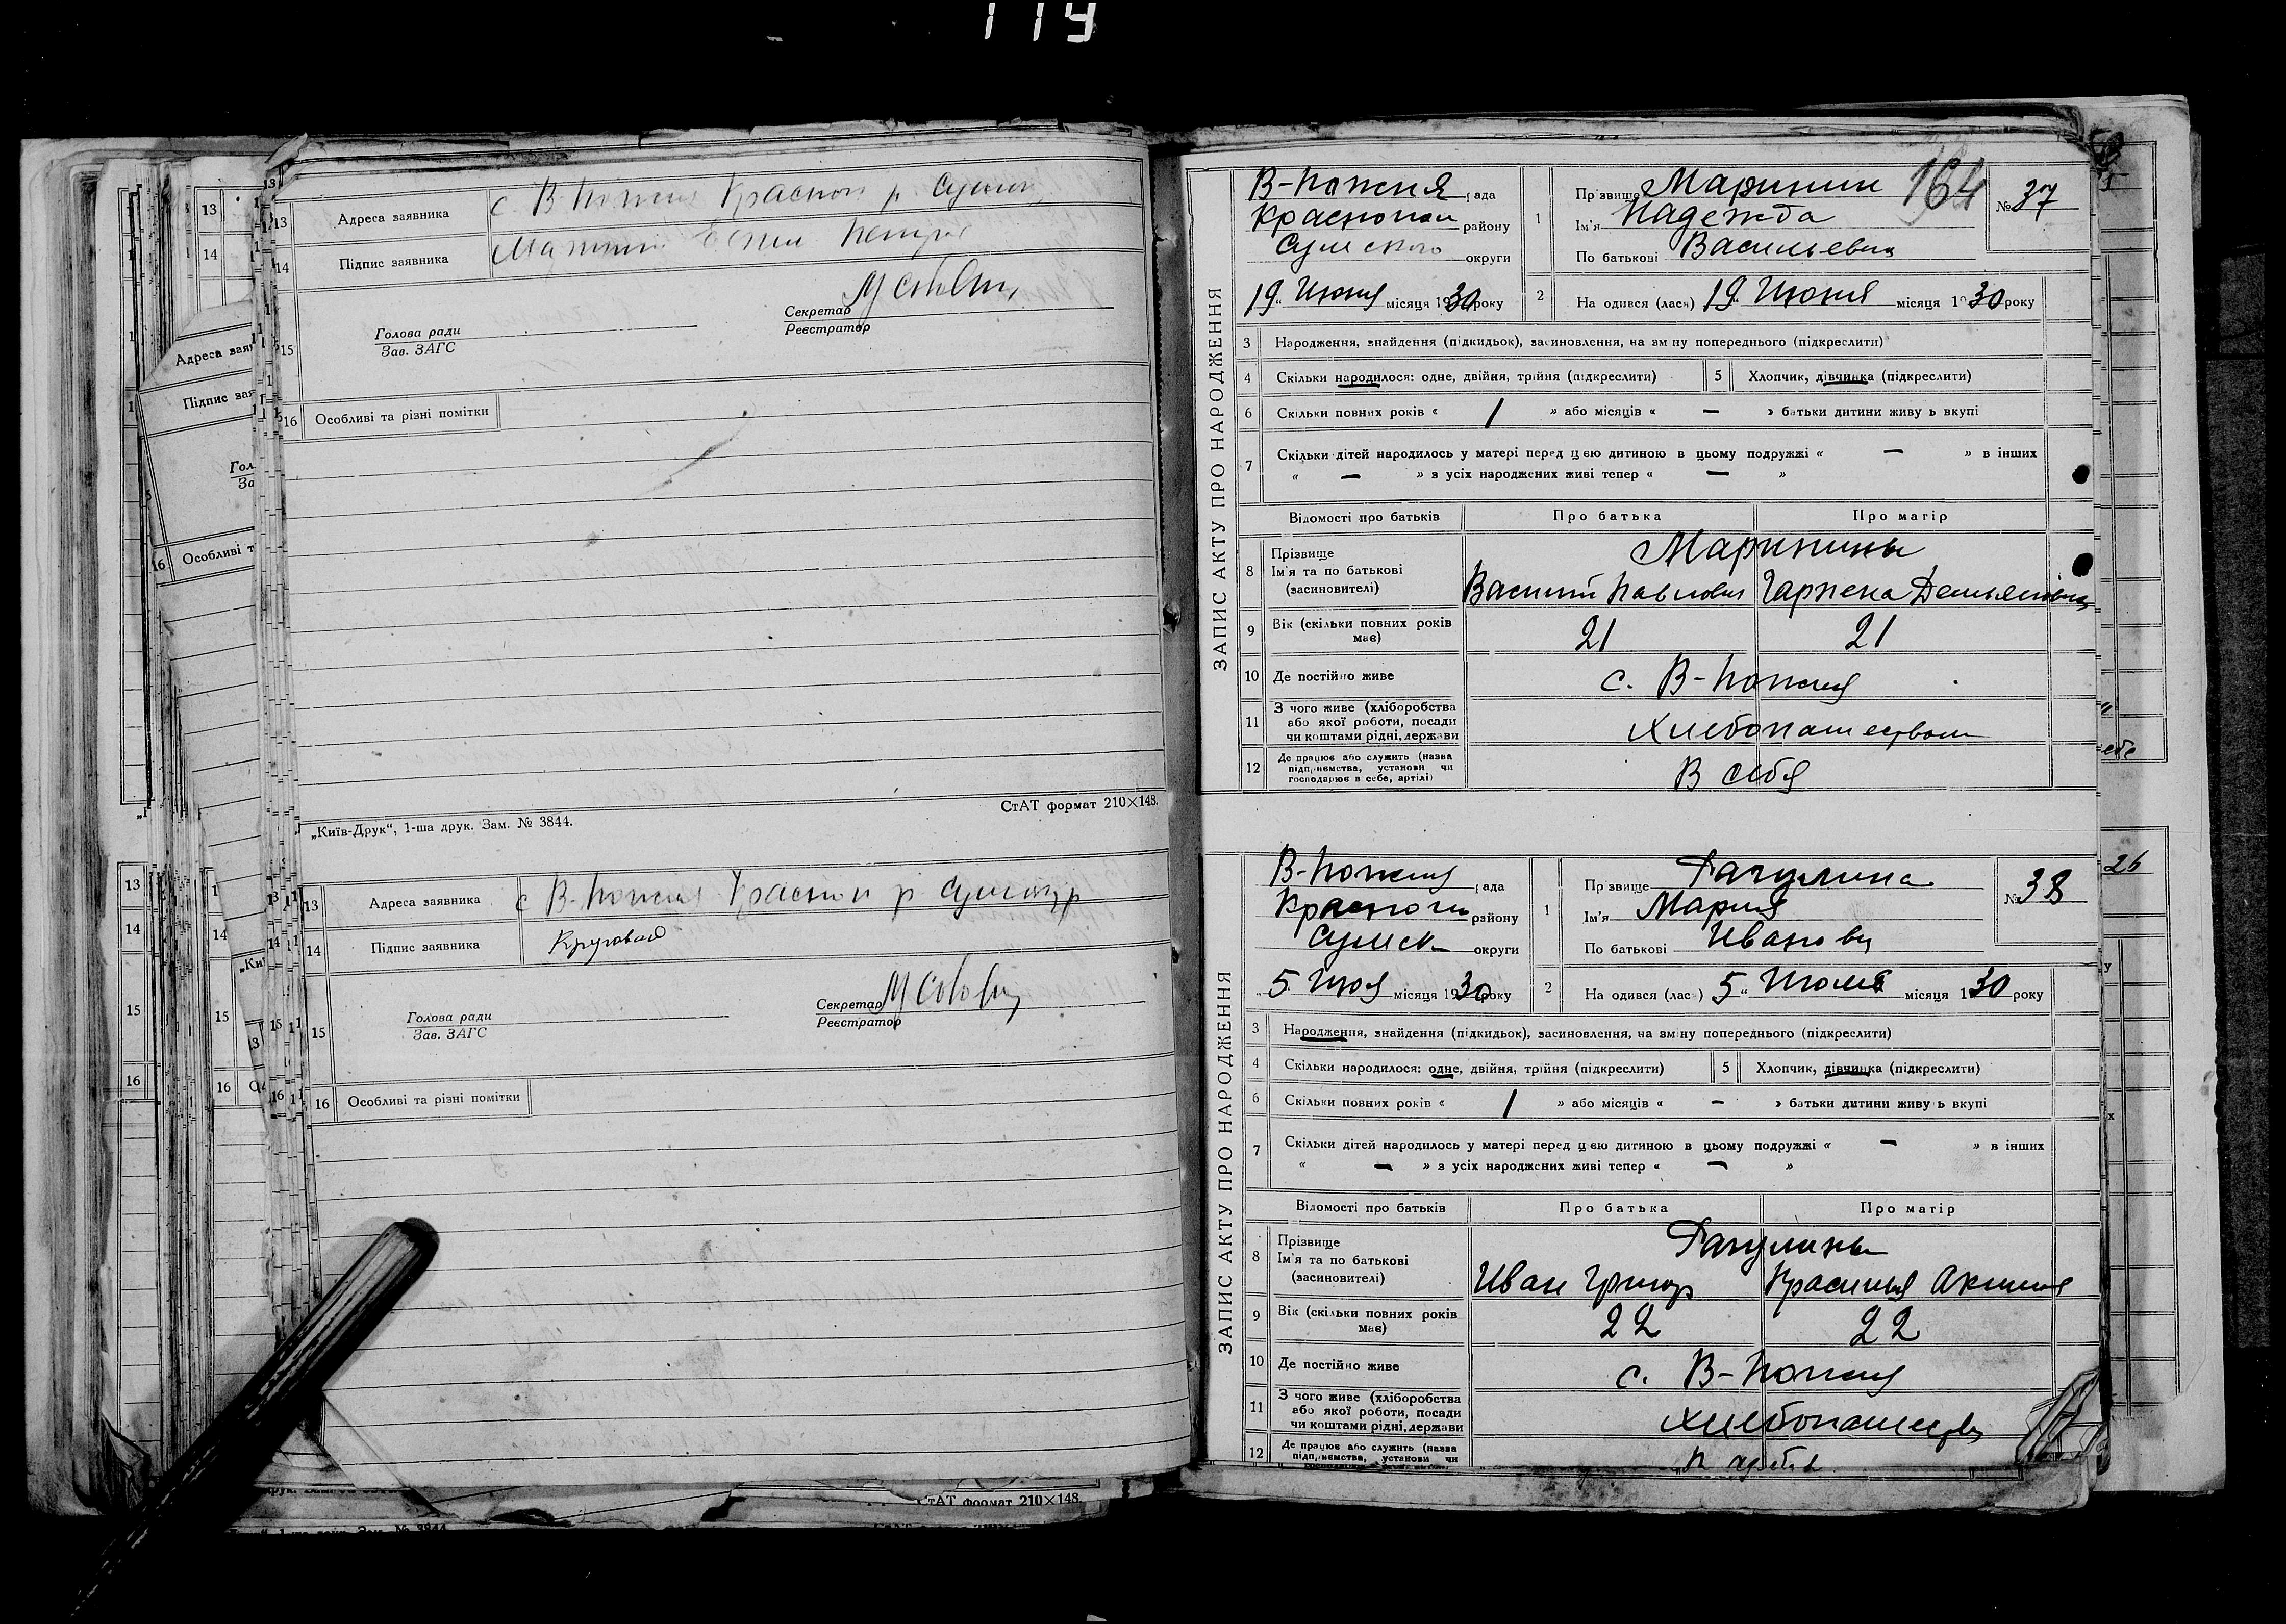 119
13 Адреса заявника с. В-Пожня Красноп р Сумск
14 Підпис заявника
15 Голова ради
Зав. ЗАГС
Секретар
Реєстратор
16 Особливі та різні помітки
„Київ-Друк“, 1-ша друк. Зам. № 3844.
СтАТ формат 210×148.
13 Адреса заявника с В-Пожня Красноп р Сумск
14 Підпис заявника
15 Голова ради
Зав. ЗАГС
Секретар
Реєстратор
16 Особливі та різні помітки
СтАТ формат 210×148.
164
ЗАПИС АКТУ ПРО НАРОДЖЕННЯ
В-Пожня рада
Краснопол району
Сумского округи
19 „ Июня місяця 1930 року
1 Прізвище Маринин
Ім'я Надежда
По батькові Васильевна
№ 37
2 На одився (лася) 19 „ Июня місяця 1930 року
3 Народження, знайдення (підкидьок), засиновлення, на зміну попереднього (підкреслити)
4 Скільки народилося: одне, двійня, трійня (підкреслити)
5 Хлопчик, дівчинка (підкреслити)
6 Скільки повних років « 1 » або місяців « — » батьки дитини живуть вкупі
7 Скільки дітей народилось у матері перед цією дитиною в цьому подружжі « — » в інших
« — » з усіх народжених живі тепер « — »
Відомості про батьків Про батька Про матір
8 Прізвище Маринины
Ім'я та по батькові Василий Павлович Демьяновна
(засиновителі)
9 Вік (скільки повних років має) 21 21
10 Де постійно живе с. В-Пожня
11 З чого живе (хліборобства
або якої роботи, посади
чи коштами рідні, держави Хлебопашеством
12 Де працює або служить (назва
підприємства, установи чи
господарює в себе, артілі) В себя
ЗАПИС АКТУ ПРО НАРОДЖЕННЯ
В-Пожня рада
Краснопол району
Сумск округи
5 місяця 1930 року
1 Прізвище
Ім'я Мария
По батькові Ивановн
№ 38
2 На одився (лася) 5 „ Июля місяця 1930 року
3 Народження, знайдення (підкидьок), засиновлення, на зміну попереднього (підкреслити)
4 Скільки народилося: одне, двійня, трійня (підкреслити)
5 Хлопчик, дівчинка (підкреслити)
6 Скільки повних років « 1 » або місяців « — » батьки дитини живуть вкупі
7 Скільки дітей народилось у матері перед цією дитиною в цьому подружжі « — » в інших
« — » з усіх народжених живі тепер « — »
Відомості про батьків Про батька Про матір
8 Прізвище
Ім'я та по батькові Иван Григор
(засиновителі)
9 Вік (скільки повних років має) 22 22
10 Де постійно живе с. В-Пожня
11 З чого живе (хліборобства
або якої роботи, посади
чи коштами рідні, держави Хлебопашеств
12 Де працює або служить (назва
підприємства, установи чи